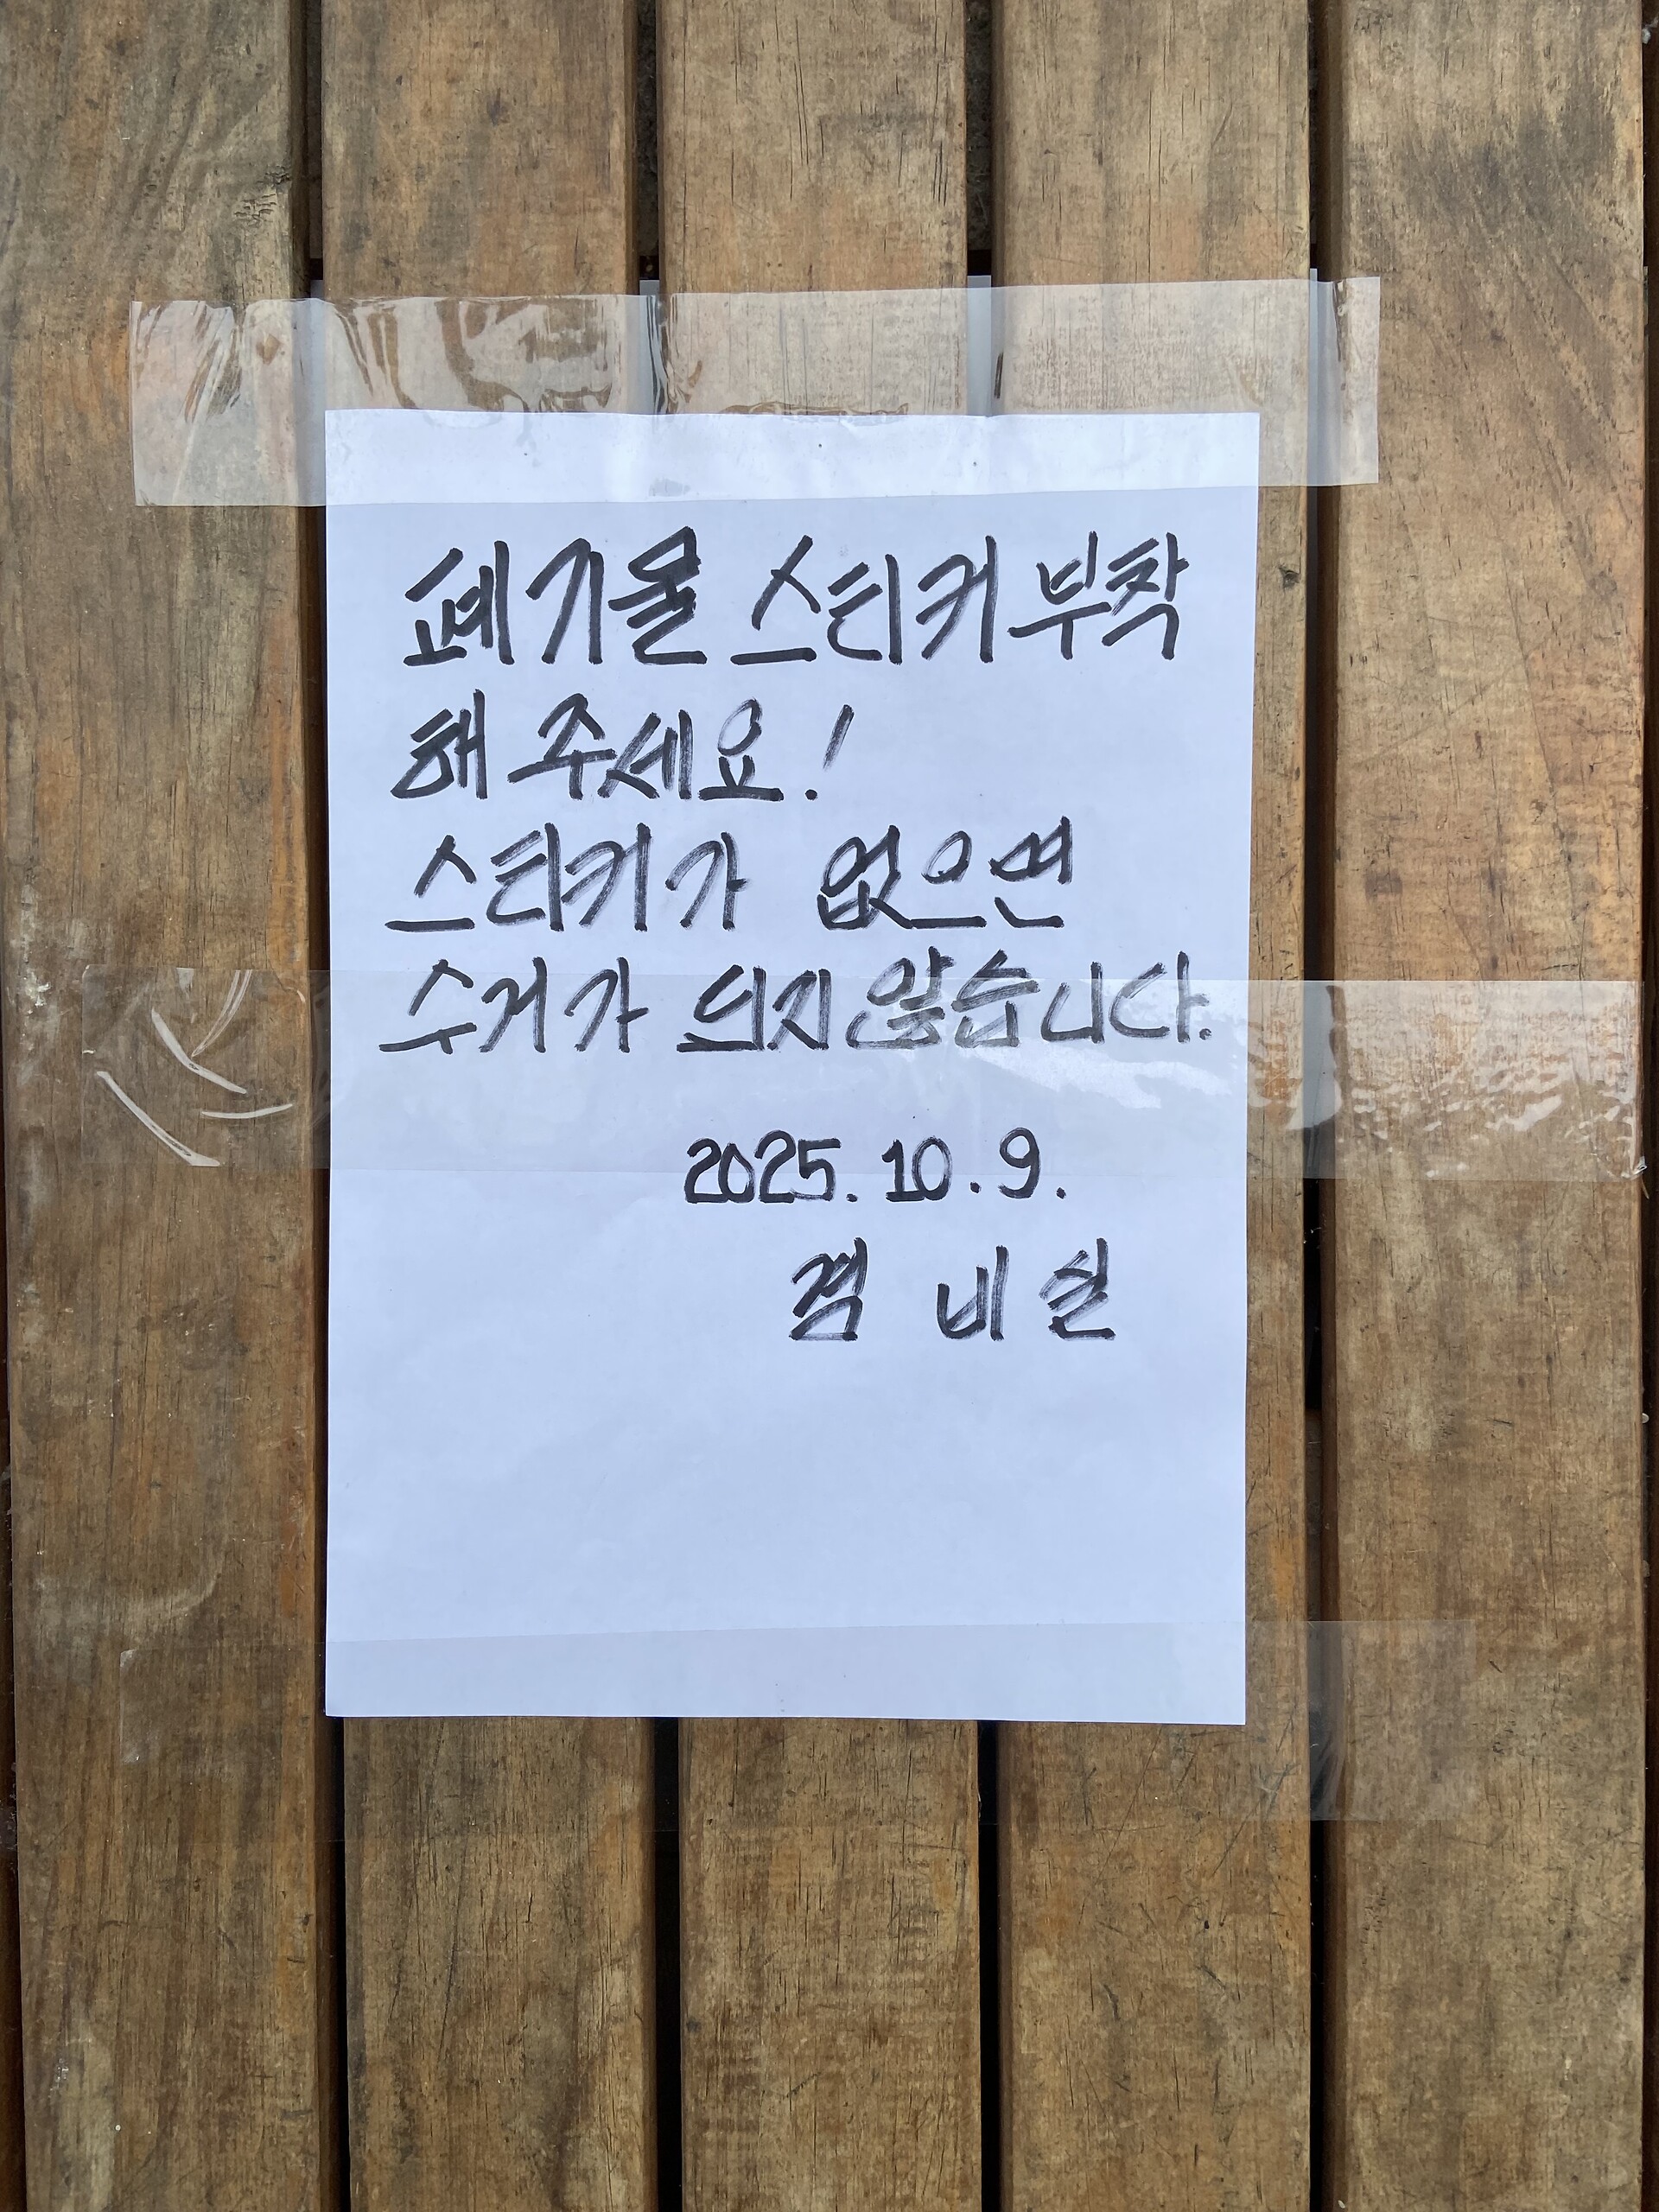 폐기물 스티커 부착
해 주세요!
스티커가 없으면
수거가 되지 않습니다.
2025. 10. 9.
경 비 실